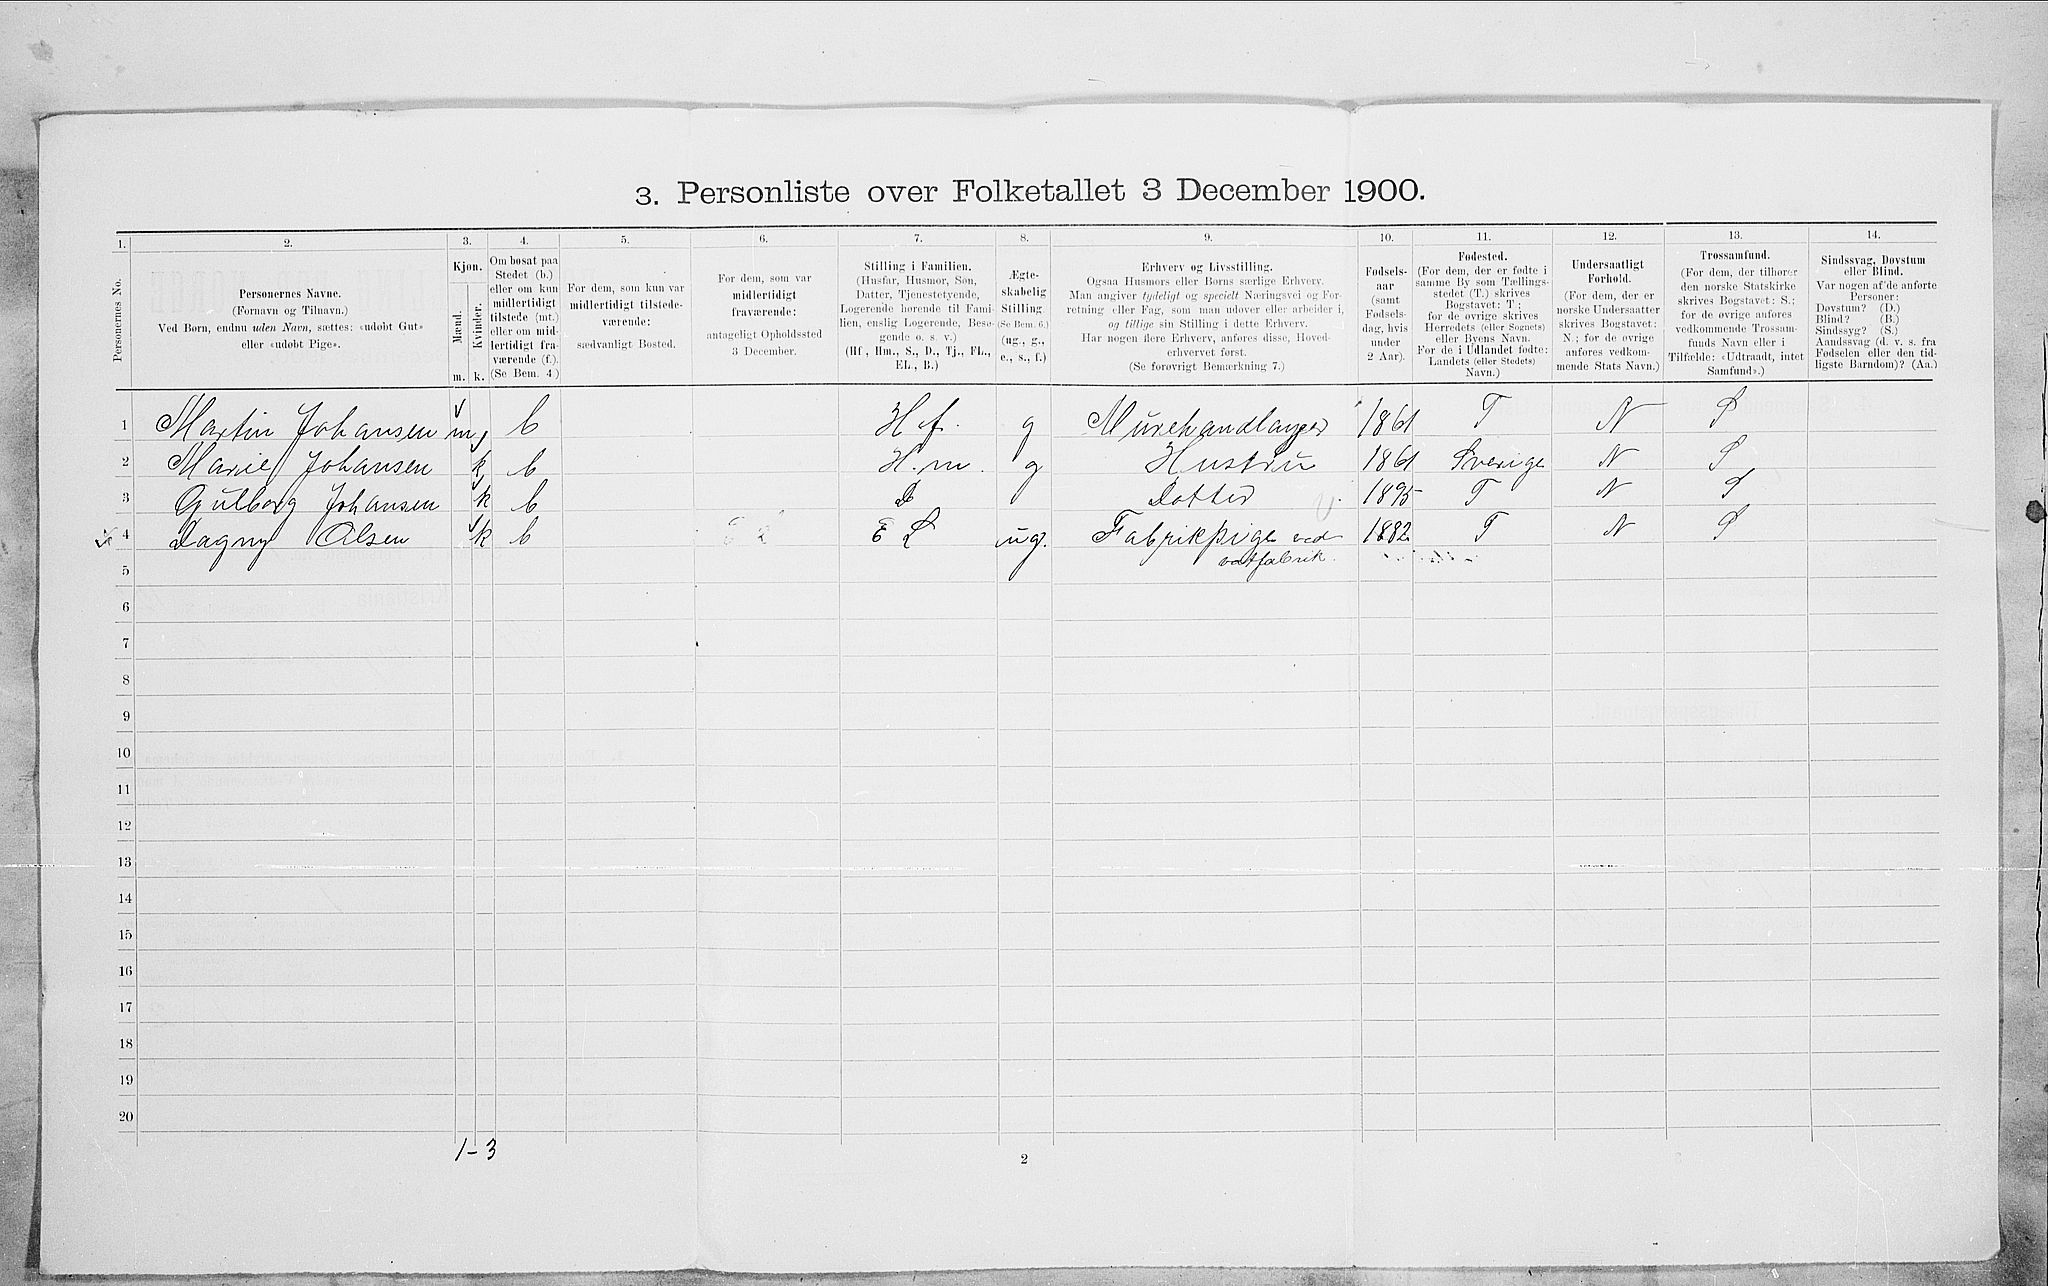 3. Personliste over Folketallet 3 December 1900.
1. 2. 3. 4. 5. 6. 7. 8. 9. 10. 11. 12. 13. 14.
Personernes No.
Personernes Navne.
(Fornavn og Tilnavn.)
Ved Børn, endnu uden Navn, sættes: «udøbt Gut»
eller «udøbt Pige».
Kjøn.
Mænd.
Kvinder.
m. k.
Om bosat paa
Stedet (b.)
eller om kun
midlertidigt
tilstede (mt.)
eller om mid-
lertidigt fra-
værende (f.).
(Se Bem. 4)
For dem, som kun var
midlertidigt tilstede-
værende:
sædvanligt Bosted.
For dem, som var
midlertidigt
fraværende:
antageligt Opholdssted
3 December.
Stilling i Familien.
(Husfar, Husmor, Søn,
Datter, Tjenestetyende,
Logerende hørende til Fami-
lien, enslig Logerende, Besø-
gende o. s. v.)
(Hf., Hm., S., D., Tj., FL.,
EL., B.)
Ægte-
skabelig
Stilling.
(Se Bem. 6.)
(ug., g.,
e., s., f.)
Erhverv og Livsstilling.
Ogsaa Husmors eller Børns særlige Erhverv.
Man angiver tydeligt og specielt Næringsvei og For-
retning eller Fag, som man udøver eller arbeider i,
og tillige sin Stilling i dette Erhverv.
Har nogen flere Erhverv, anføres disse, Hoved-
erhvervet først.
(Se forøvrigt Bemærkning 7.)
Fødsels-
aar
(samt
Fødsels-
dag, hvis
under
2 Aar).
Fødested.
(For dem, der er fødte i
samme By som Tællings-
stedet (T.) skrives
Bogstavet: T;
for de øvrige skrives
Herredets (eller Sognets)
eller Byens Navn.
For de i Udlandet fødte:
Landets (eller Stedets)
Navn.)
Undersaatligt
Forhold.
(For dem, der er
norske Undersaatter
skrives Bogstavet:
N.; for de øvrige
anføres vedkom-
mende Stats Navn.)
Trossamfund.
(For dem, der tilhører
den norske Statskirke
skrives Bogstavet: S.;
for de øvrige anføres
vedkommende Trossam-
funds Navn eller i
Tilfælde: «Udtraadt, intet
Samfund».)
Sindssvag, Døvstum
eller Blind.
Var nogen af de anførte
Personer:
Døvstum? (D.)
Blind? (B.)
Sindssyg? (S.)
Aandssvag (d. v. s. fra
Fødselen eller den tid-
ligste Barndom)? (Aa.)
1 Martin Johansen m b H.f. g Murehandlanger 1861 T N S
2 Marie Johansen k b H.m. g Hustru 1861 Sverige N S
3 Gulborg Johansen k b D Dotter 1895 T N S
4 Dagny Olsen k b E L ug. Fabrikpige ved 1882 T N S
vatfabrik.
5
6
7
8
9
10
11
12
13
14
15
16
17
18
19
20
1-3
2